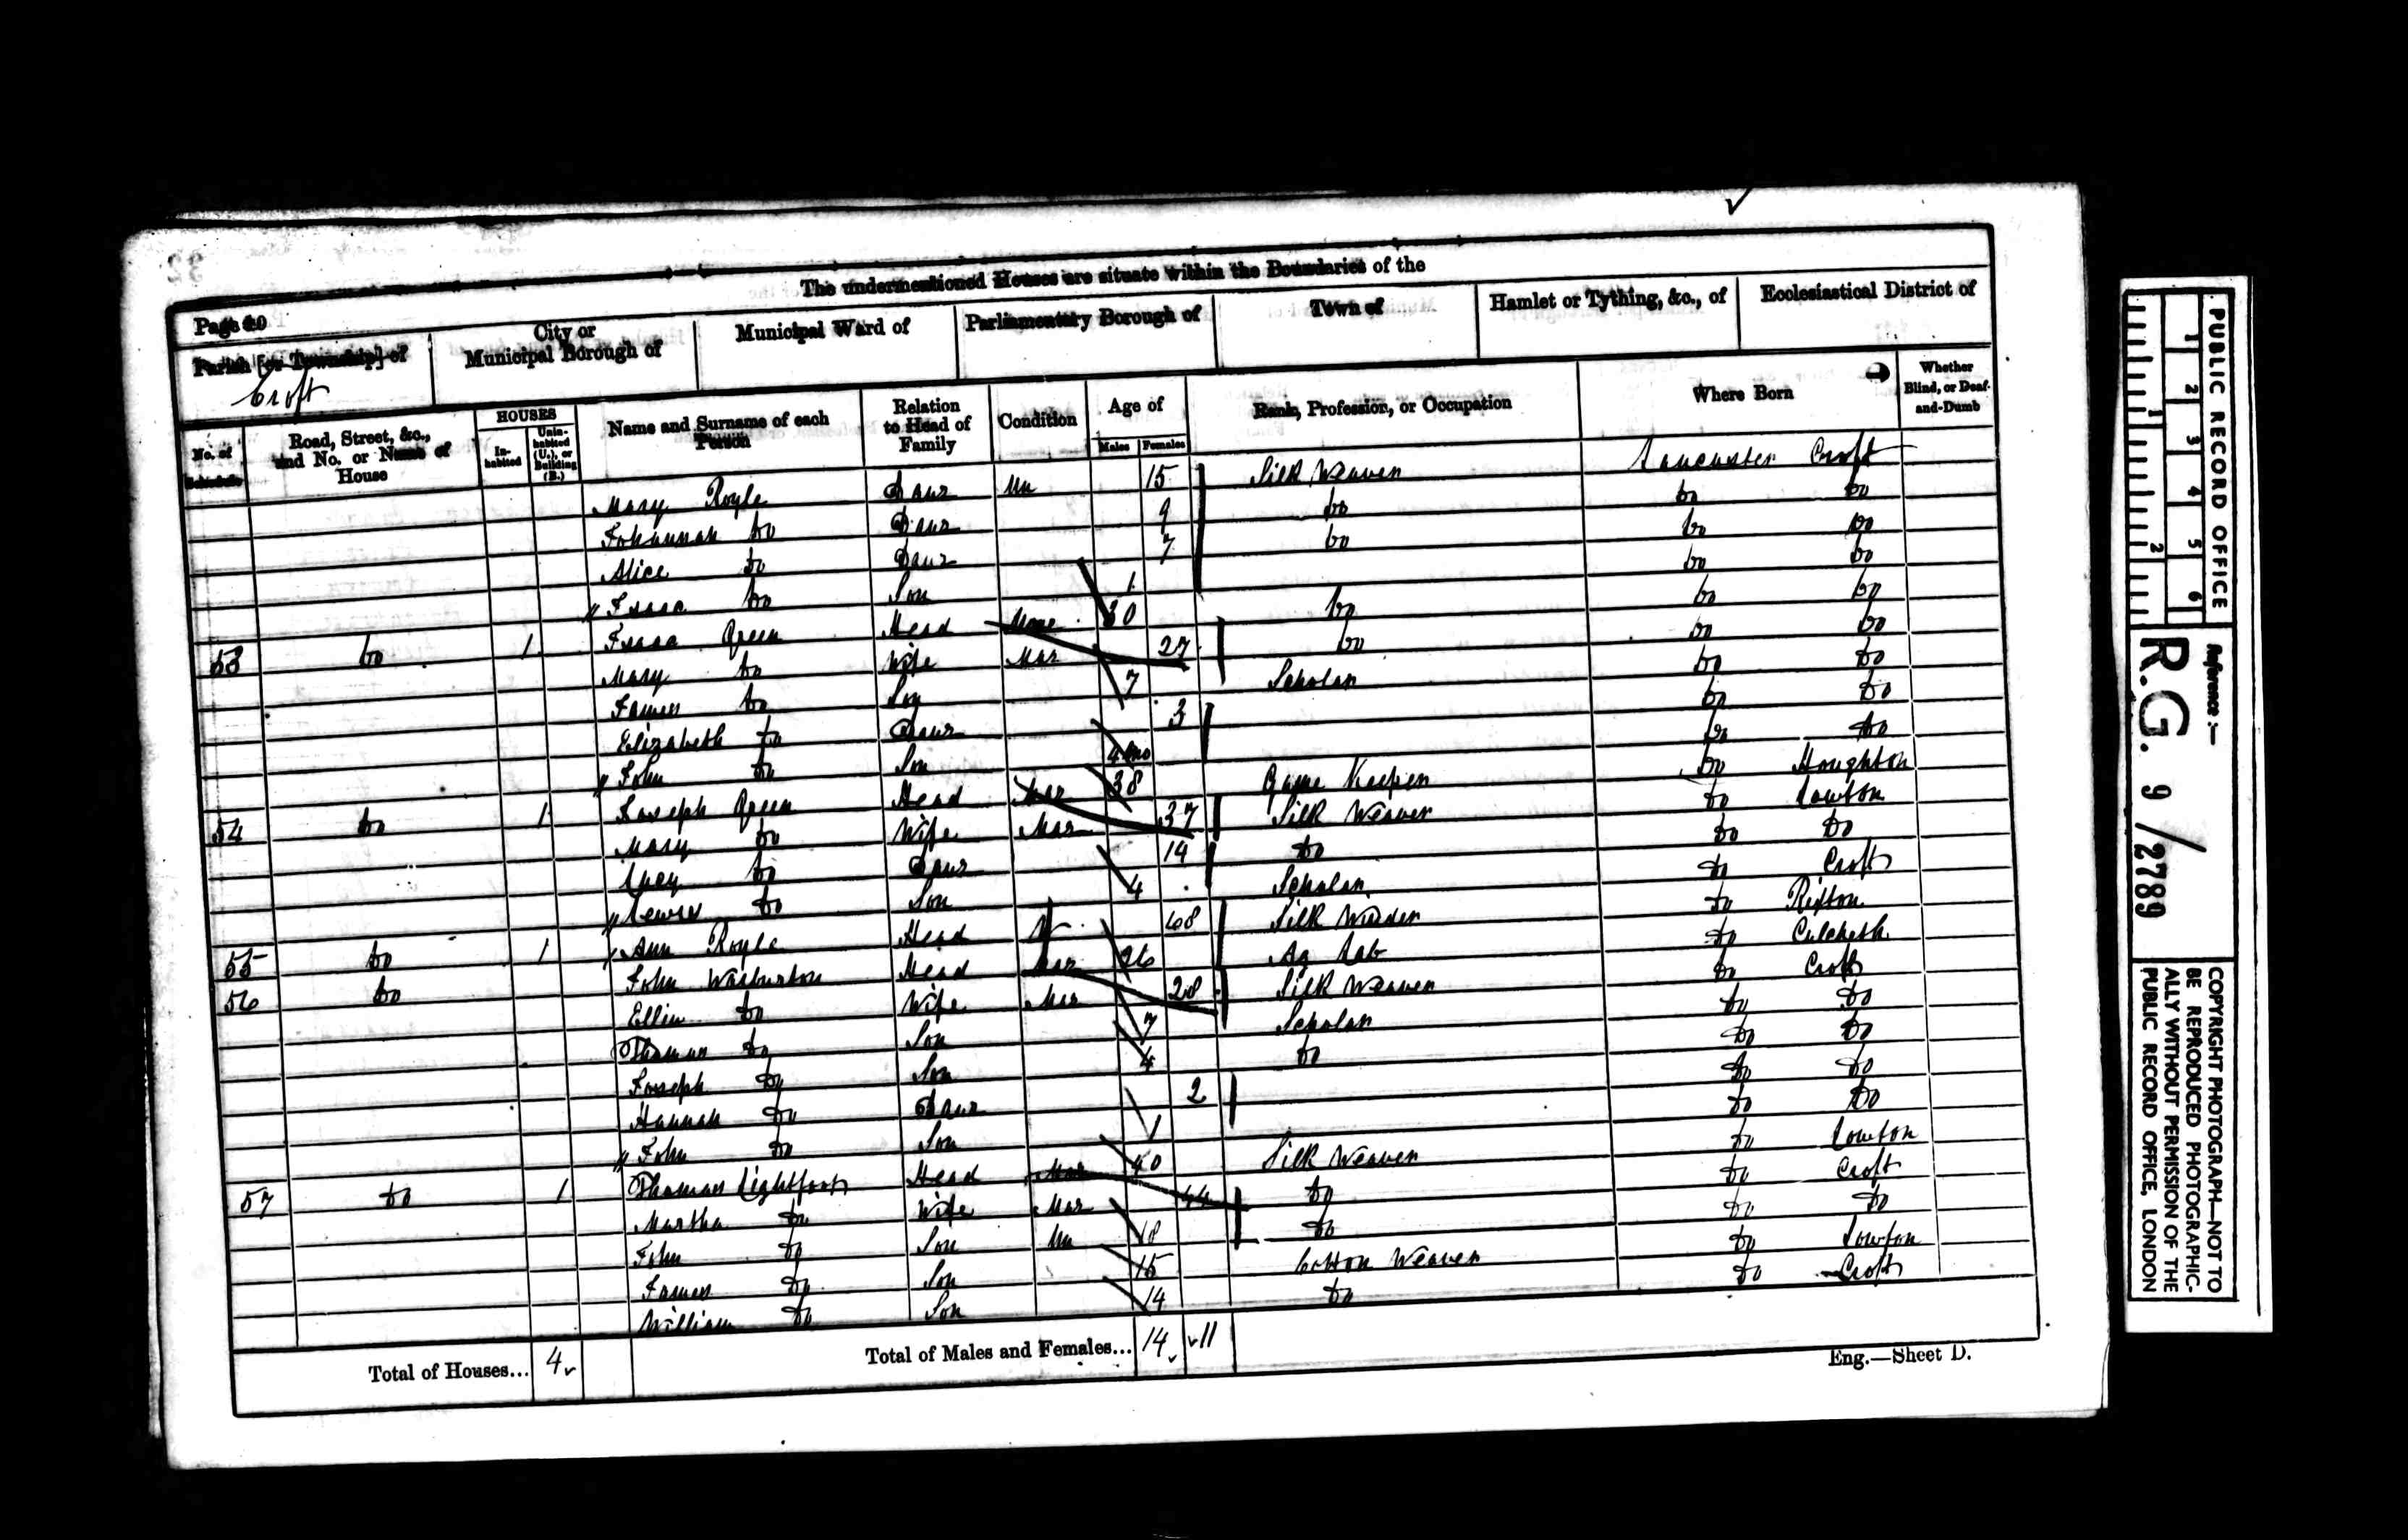 The undermentioned Houses are situate within the Boundaries of the
Page 20
Parish [or Township] of
Croft
City or
Municipal Borough of
Municipal Ward of
Parliamentary Borough of
Town of
Hamlet or Tything, &c., of
Ecclesiastical District of
No. of Schedule
Road, Street, &c., and No. or Name of House
HOUSES
In-habited
Unin-habited (U.), or Building (B.)
Name and Surname of each Person
Relation to Head of Family
Condition
Age of
Males Females
Rank, Profession, or Occupation
Where Born
Whether Blind, or Deaf-and-Dumb
Mary Royle Daur Un 15 Silk Weaver Lancaster Croft
Johannah Do Daur 9 Do Do Do
Alice Do Daur 7 Do Do Do
Isaac Do Son 1 Do Do
53 Do 1 Isaac Green Head Mar 30 Do Do Do
Mary Do Wife Mar 27 Do Do Do
James Do Son 7 Scholar Do Do
Elizabeth Do Daur 3 Do Do
John Do Son 4 mo Do Do
54 Do 1 Joseph Green Head Mar 38 Game Keeper Do Houghton
Mary Do Wife Mar 37 Silk Weaver Do Lowton
Lucy Do Daur 14 Do Do Do
Lewis Do Son 4 Scholar Do Croft
55 Do 1 Ann Royle Head 68 Silk Winder Do Rixton
56 Do John Warburton Head Mar 26 Ag Lab Do Culcheth
Ellin Do Wife Mar 28 Silk Weaver Do Croft
Thomas Do Son 7 Scholar Do Do
Joseph Do Son 4 Do Do Do
Hannah Do Daur 2 Do Do
John Do Son 1 Do Do
57 Do 1 Thomas Lightfoot Head Mar 40 Silk Weaver Do Lowton
Martha Do Wife Mar 44 Do Do Croft
John Do Son Un 18 Do Do Do
James Do Son 15 Cotton Weaver Do Lowton
William Do Son 14 Do Do Croft
Total of Houses... 4
Total of Males and Females... 14 11
Eng.—Sheet D.
PUBLIC RECORD OFFICE
1 2 3 4 5 6
1 2
Reference :—
R.G. 9 / 2789
COPYRIGHT PHOTOGRAPH—NOT TO
BE REPRODUCED PHOTOGRAPHIC-
ALLY WITHOUT PERMISSION OF THE
PUBLIC RECORD OFFICE, LONDON